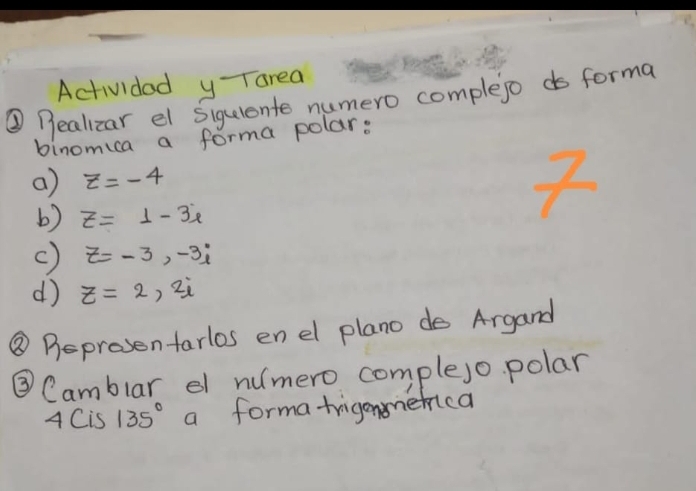 Actividad y Tarea
① Realizar el siguiente numero complejo de forma
binomica a forma polar:
a) z = -4
b) z = 1 - 3i
c) z = -3, -3i
d) z = 2, 2i
7
② Representarlos en el plano de Argand
③ Cambiar el número complejo polar
4 Cis 135° a forma trigonométrica